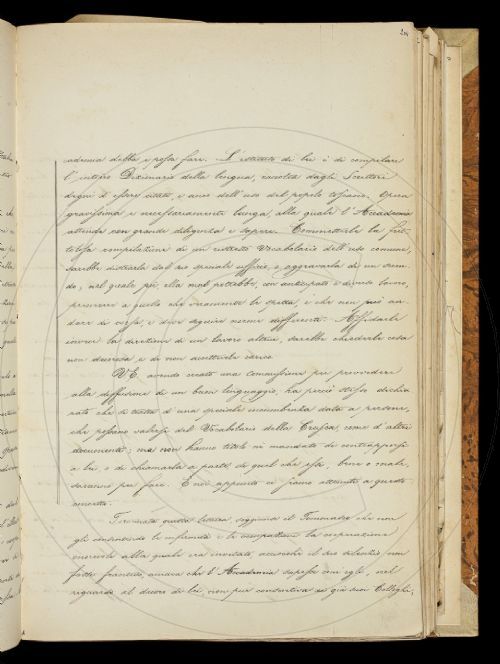 cademia debba e possa fare. L'istituto di lei è di compilare
l'intero Dizionario della lingua, raccolta dagli Scrittori
degni d'essere citati, e anco dell'uso del popolo toscano. Opera
gravissima e necessariamente lunga, alla quale l'Accademia
attende con grande diligenza e sapere. Commetterle la frettolosa
compilazione di un ristretto Vocabolario dell'uso comune,
sarebbe distrarla dal suo speciale ufficio, e aggravarla di un secondo;
nel quale poi, ella mal potrebbe, con anticipato e diverso lavoro,
pervenire a quello che veramente le spetta, e che non può andare
di corsa, e deve seguire norme differenti. Affidarle
invece la direzione di un lavoro altrui, sarebbe chiederle cosa
non decorosa e di non accettevole carico.
V.E. avendo creato una commissione per provvedere
alla diffusione di un buon linguaggio, ha perciò stesso dichiarato
che si tratta d'una speciale incombenza data a persone,
che possano valersi del Vocabolario della Crusca, come d'altri
documenti; ma non hanno titolo nè mandato di contrapporsi
a lei, o di chiamarla a parte di quel che essi, bene o male,
saranno per fare. E noi appunto ci siamo attenuti a questo
concetto.
Terminata questa lettura, soggiunse il Tommaseo che non
gli consentendo le infermità e le occupazioni la cooperazione
onorevole alla quale era invitato, acciocchè il suo silenzio non
fosse frainteso, amava che l'Accademia sapesse com'egli, nel
riguardo al decoro di lei, non pur consentiva co' già suoi Colleghi,